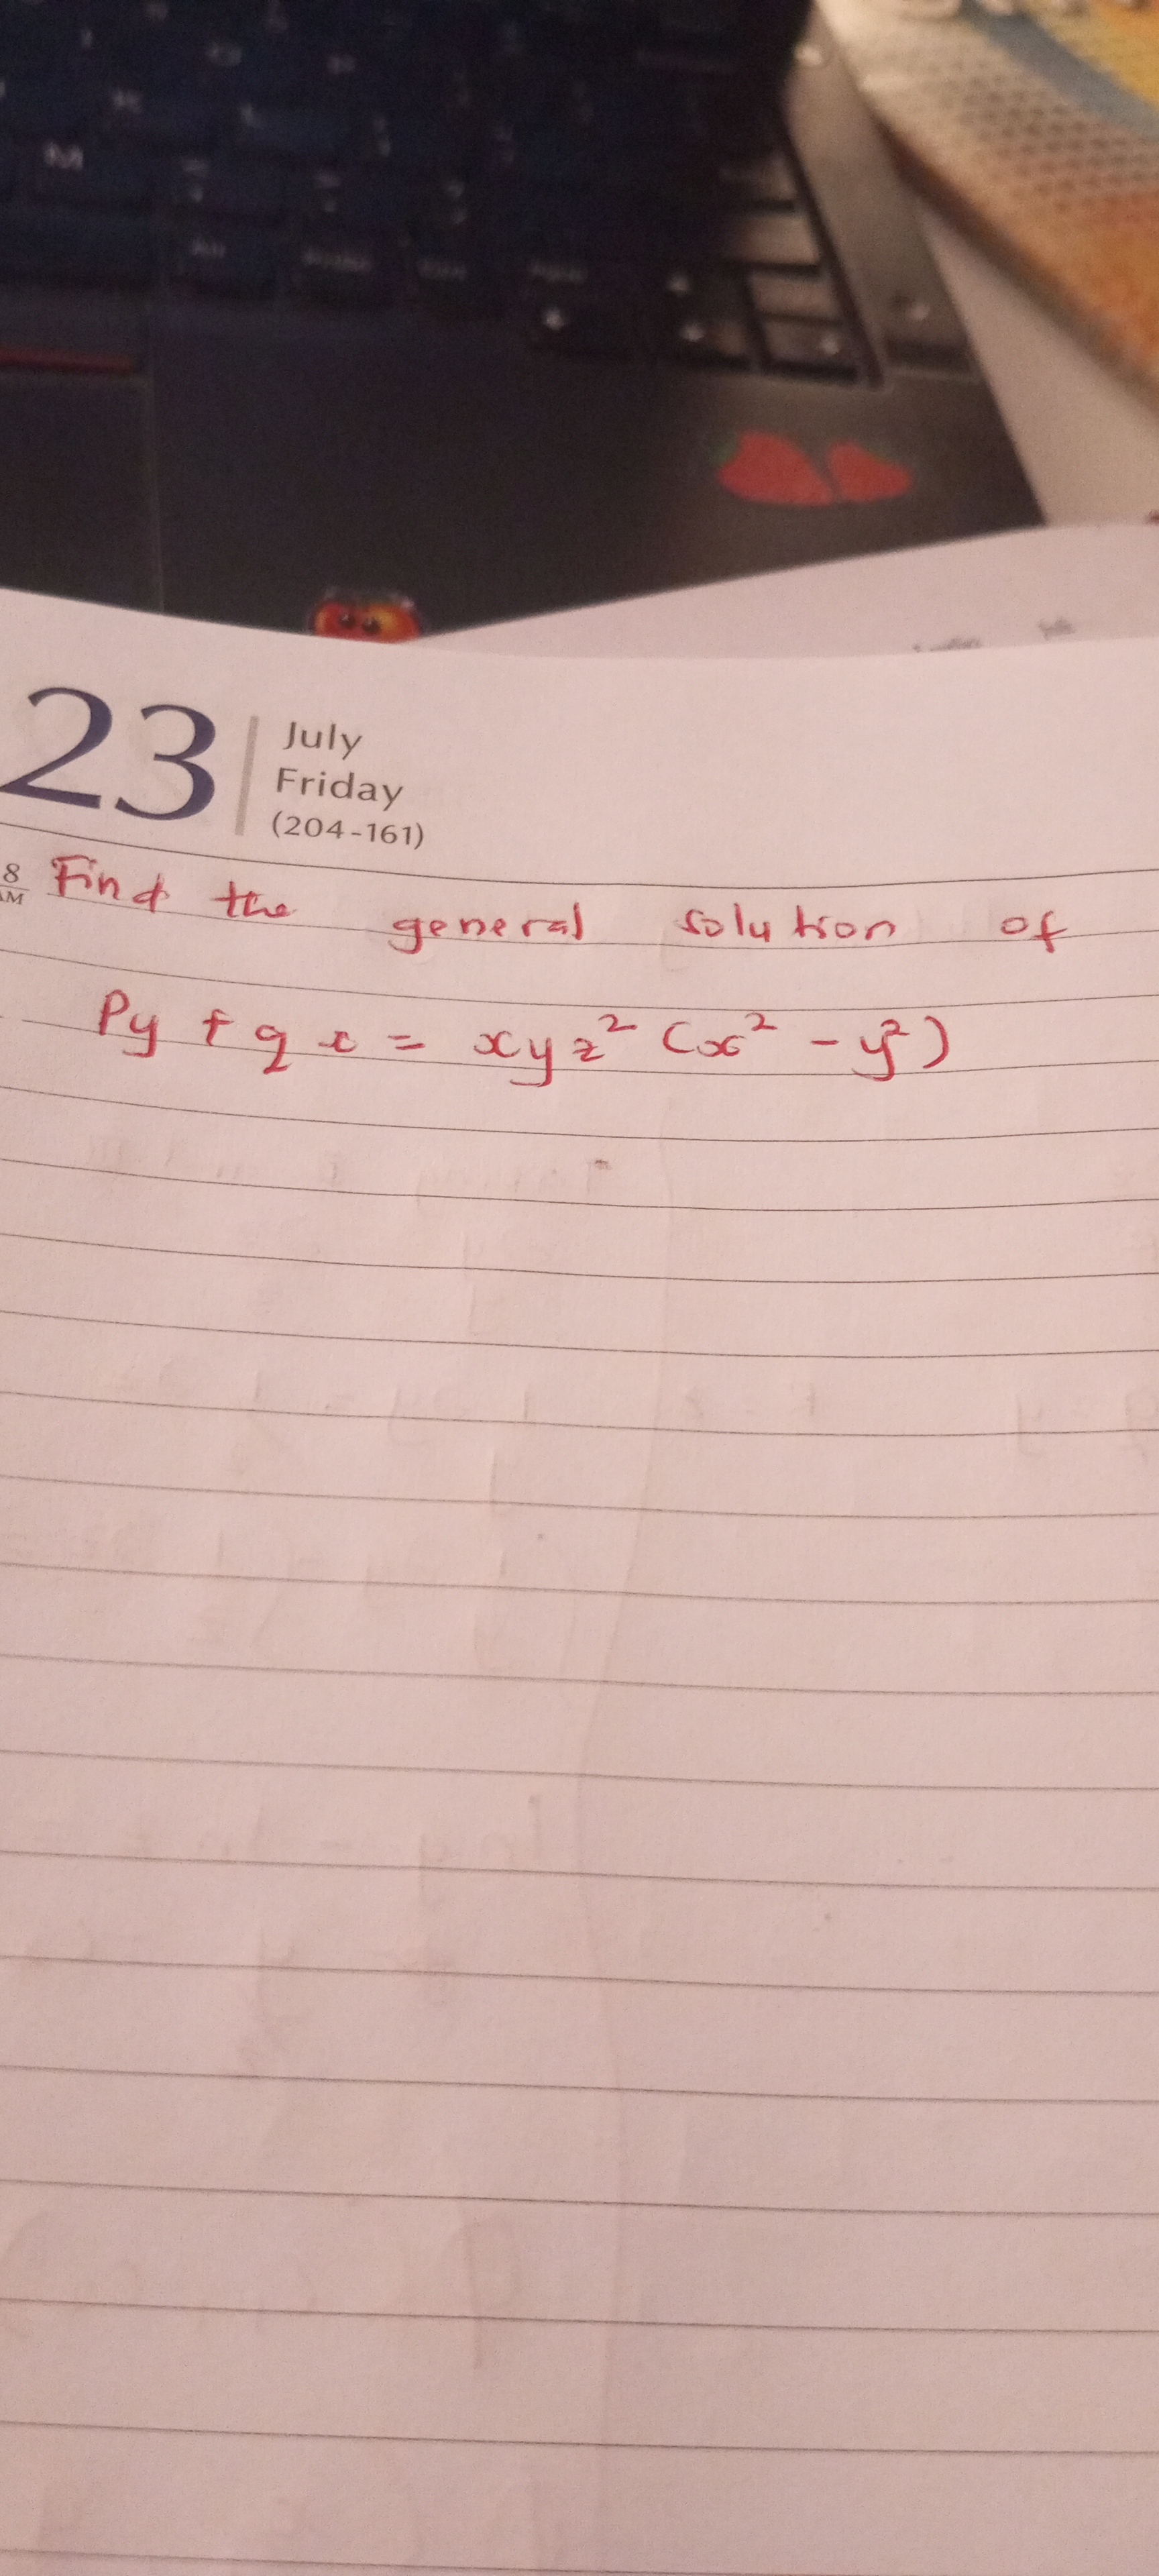 M
Alt
23
July
Friday
(204-161)
8
AM
Find the general solution of
Py + qx = xyz² (x² - y²)